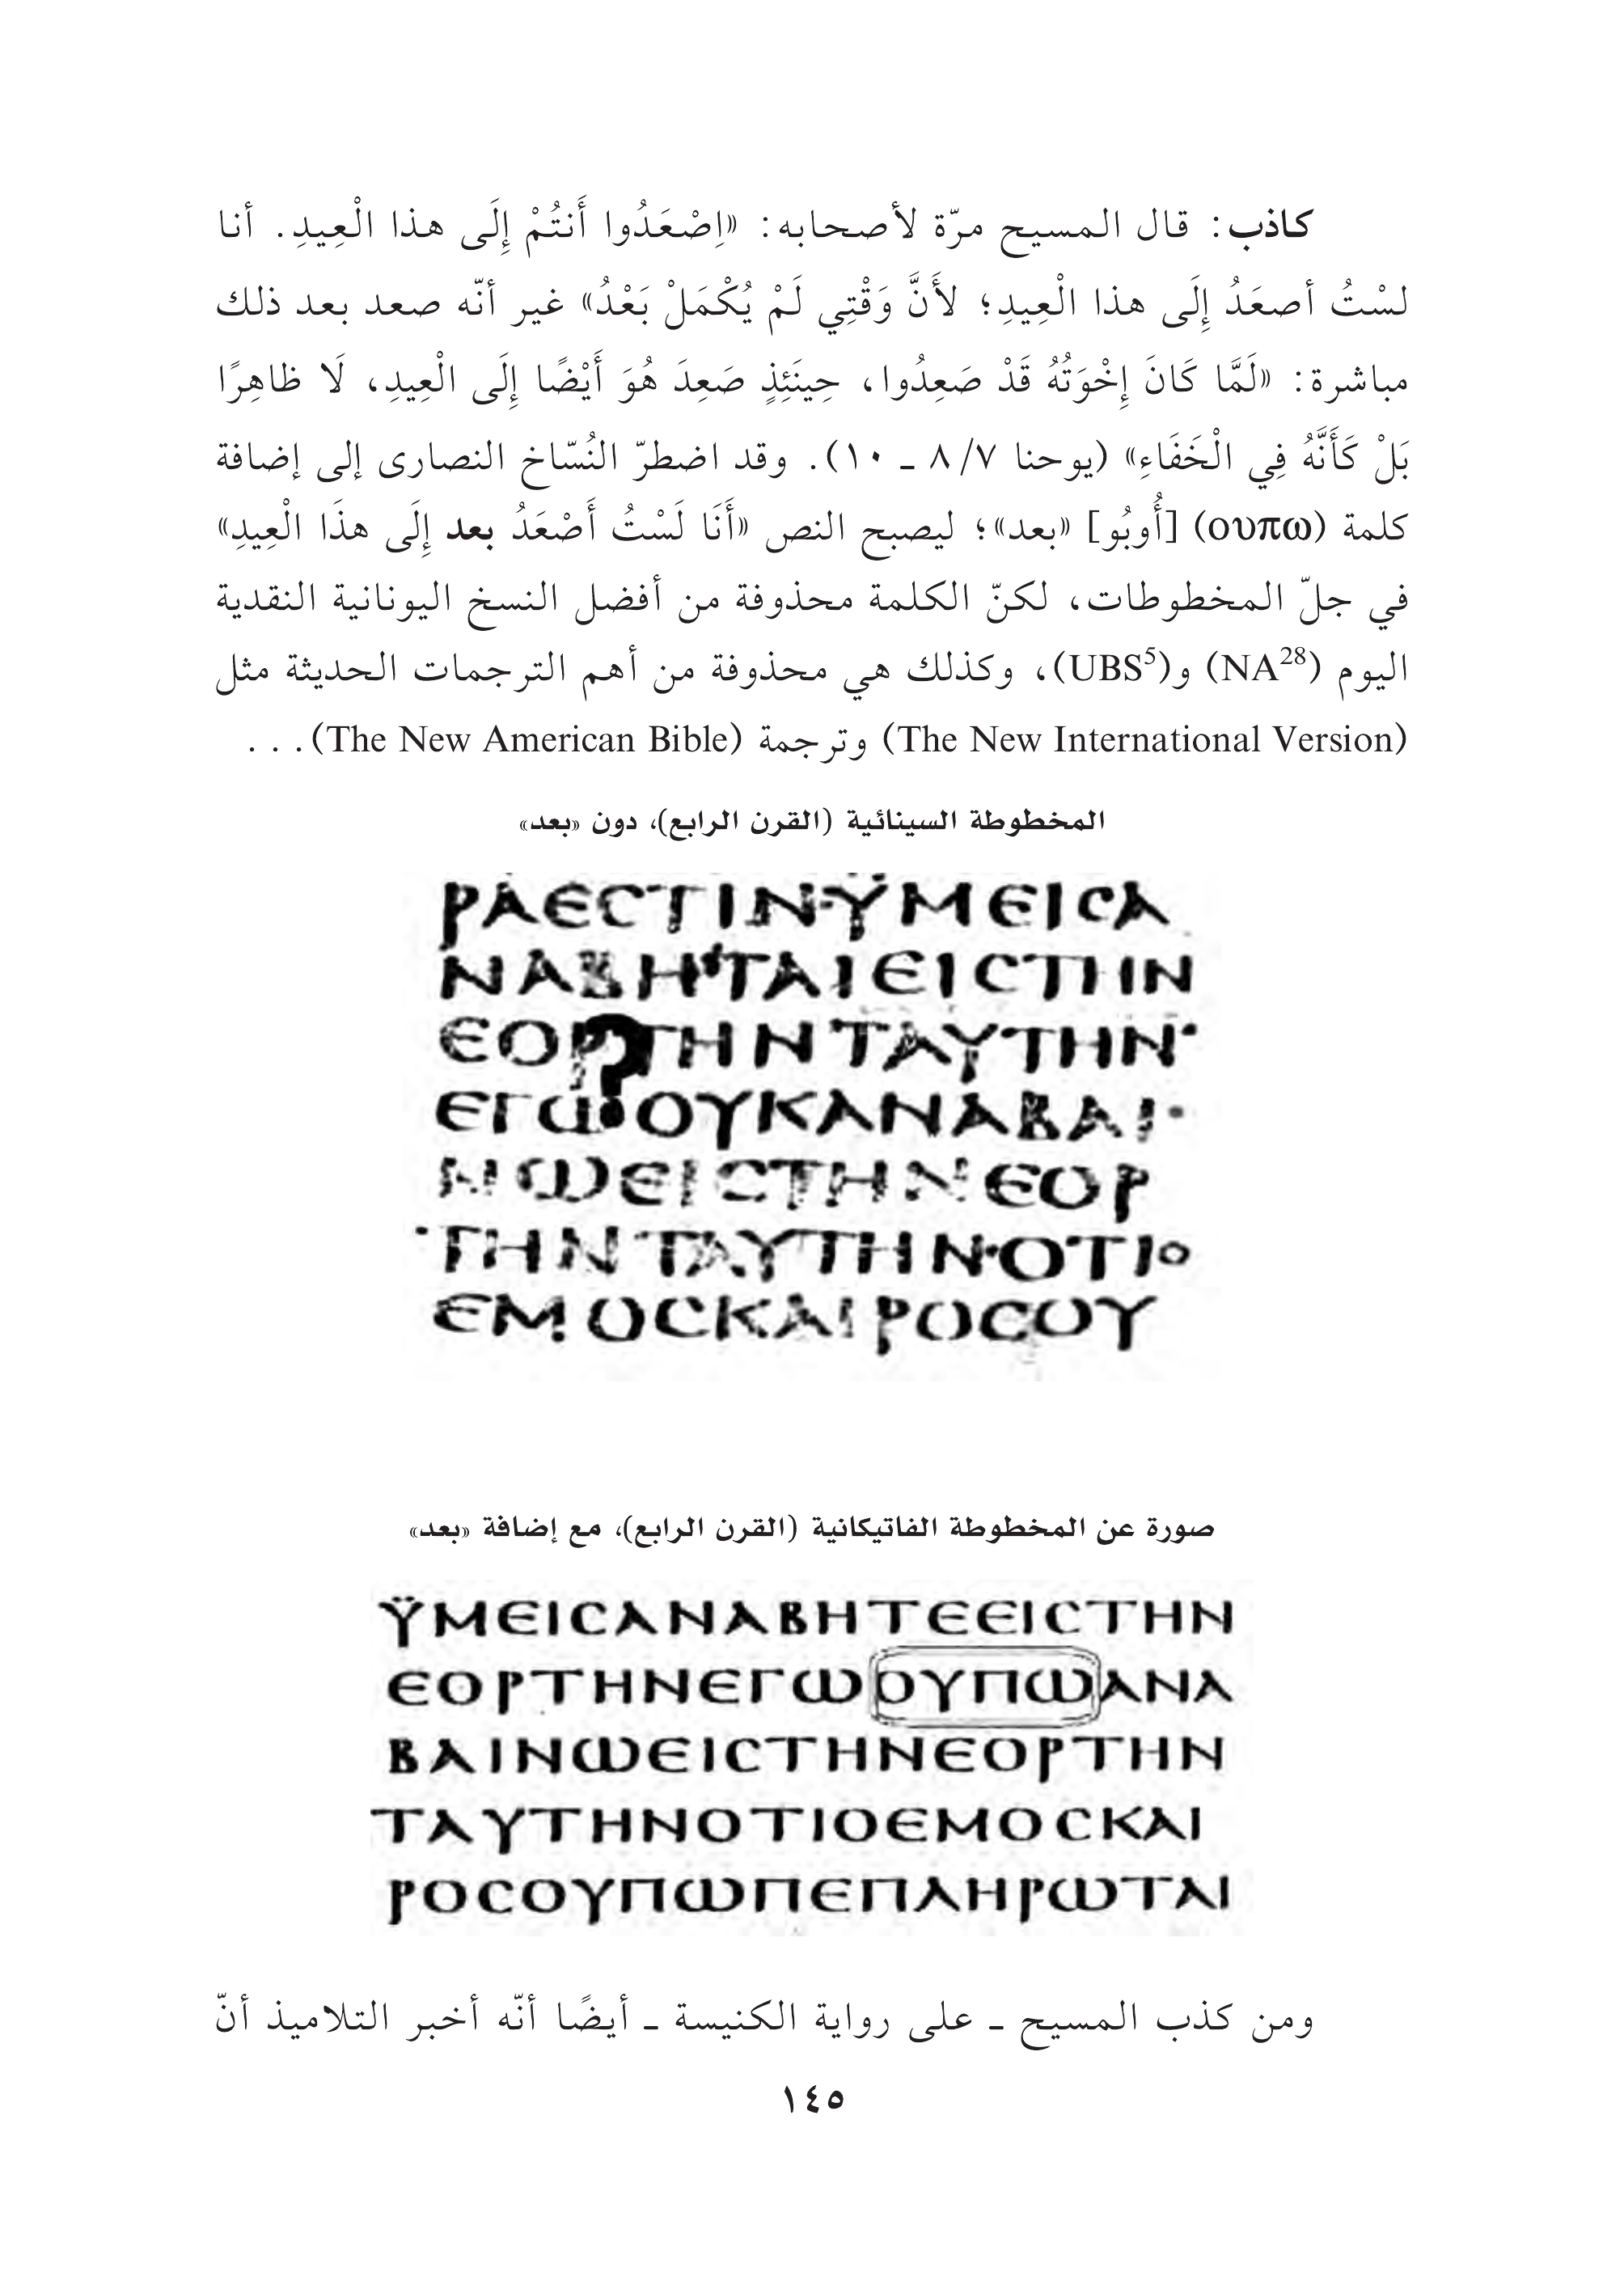 كاذب: قال المسيح مرّة لأصحابه: «اِصْعَدُوا أَنتُمْ إِلَى هذا الْعِيدِ. أنا
لسْتُ أصعَدُ إِلَى هذا الْعِيدِ؛ لأَنَّ وَقْتِي لَمْ يُكْمَلْ بَعْدُ» غير أنّه صعد بعد ذلك
مباشرة: «لَمَّا كَانَ إِخْوَتُهُ قَدْ صَعِدُوا، حِينَئِذٍ صَعِدَ هُوَ أَيْضًا إِلَى الْعِيدِ، لَا ظاهِرًا
بَلْ كَأَنَّهُ فِي الْخَفَاءِ» (يوحنا ٧/ ٨ ـ ١٠). وقد اضطرّ النُسّاخ النصارى إلى إضافة
كلمة (ουπω) [أُوبُو] «بعد»؛ ليصبح النص «أَنَا لَسْتُ أَصْعَدُ بعد إِلَى هذَا الْعِيدِ»
في جلّ المخطوطات، لكنّ الكلمة محذوفة من أفضل النسخ اليونانية النقدية
اليوم (NA28) و(UBS5)، وكذلك هي محذوفة من أهم الترجمات الحديثة مثل
(The New International Version) وترجمة (The New American Bible)...
المخطوطة السينائية (القرن الرابع)، دون «بعد»
ΡΑΕϹΤΙΝ·ΫΜΕΙϹΑ
ΝΑΒΗΤΑΙΕΙϹΤΗΝ
ΕΟΡΤΗΝΤΑΥΤΗΝ·
ΕΓΩ?ΟΥΚΑΝΑΒΑΙ·
ΝΩΕΙϹΤΗΝΕΟΡ
ΤΗΝΤΑΥΤΗΝ·ΟΤΙΟ
ΕΜΟϹΚΑΙΡΟϹΟΥ
صورة عن المخطوطة الفاتيكانية (القرن الرابع)، مع إضافة «بعد»
ΫΜΕΙϹΑΝΑΒΗΤΕΕΙϹΤΗΝ
ΕΟΡΤΗΝΕΓΩΟΥΠΩΑΝΑ
ΒΑΙΝΩΕΙϹΤΗΝΕΟΡΤΗΝ
ΤΑΥΤΗΝΟΤΙΟΕΜΟϹΚΑΙ
ΡΟϹΟΥΠΩΠΕΠΛΗΡΩΤΑΙ
ومن كذب المسيح ـ على رواية الكنيسة ـ أيضًا أنّه أخبر التلاميذ أنّ
١٤٥